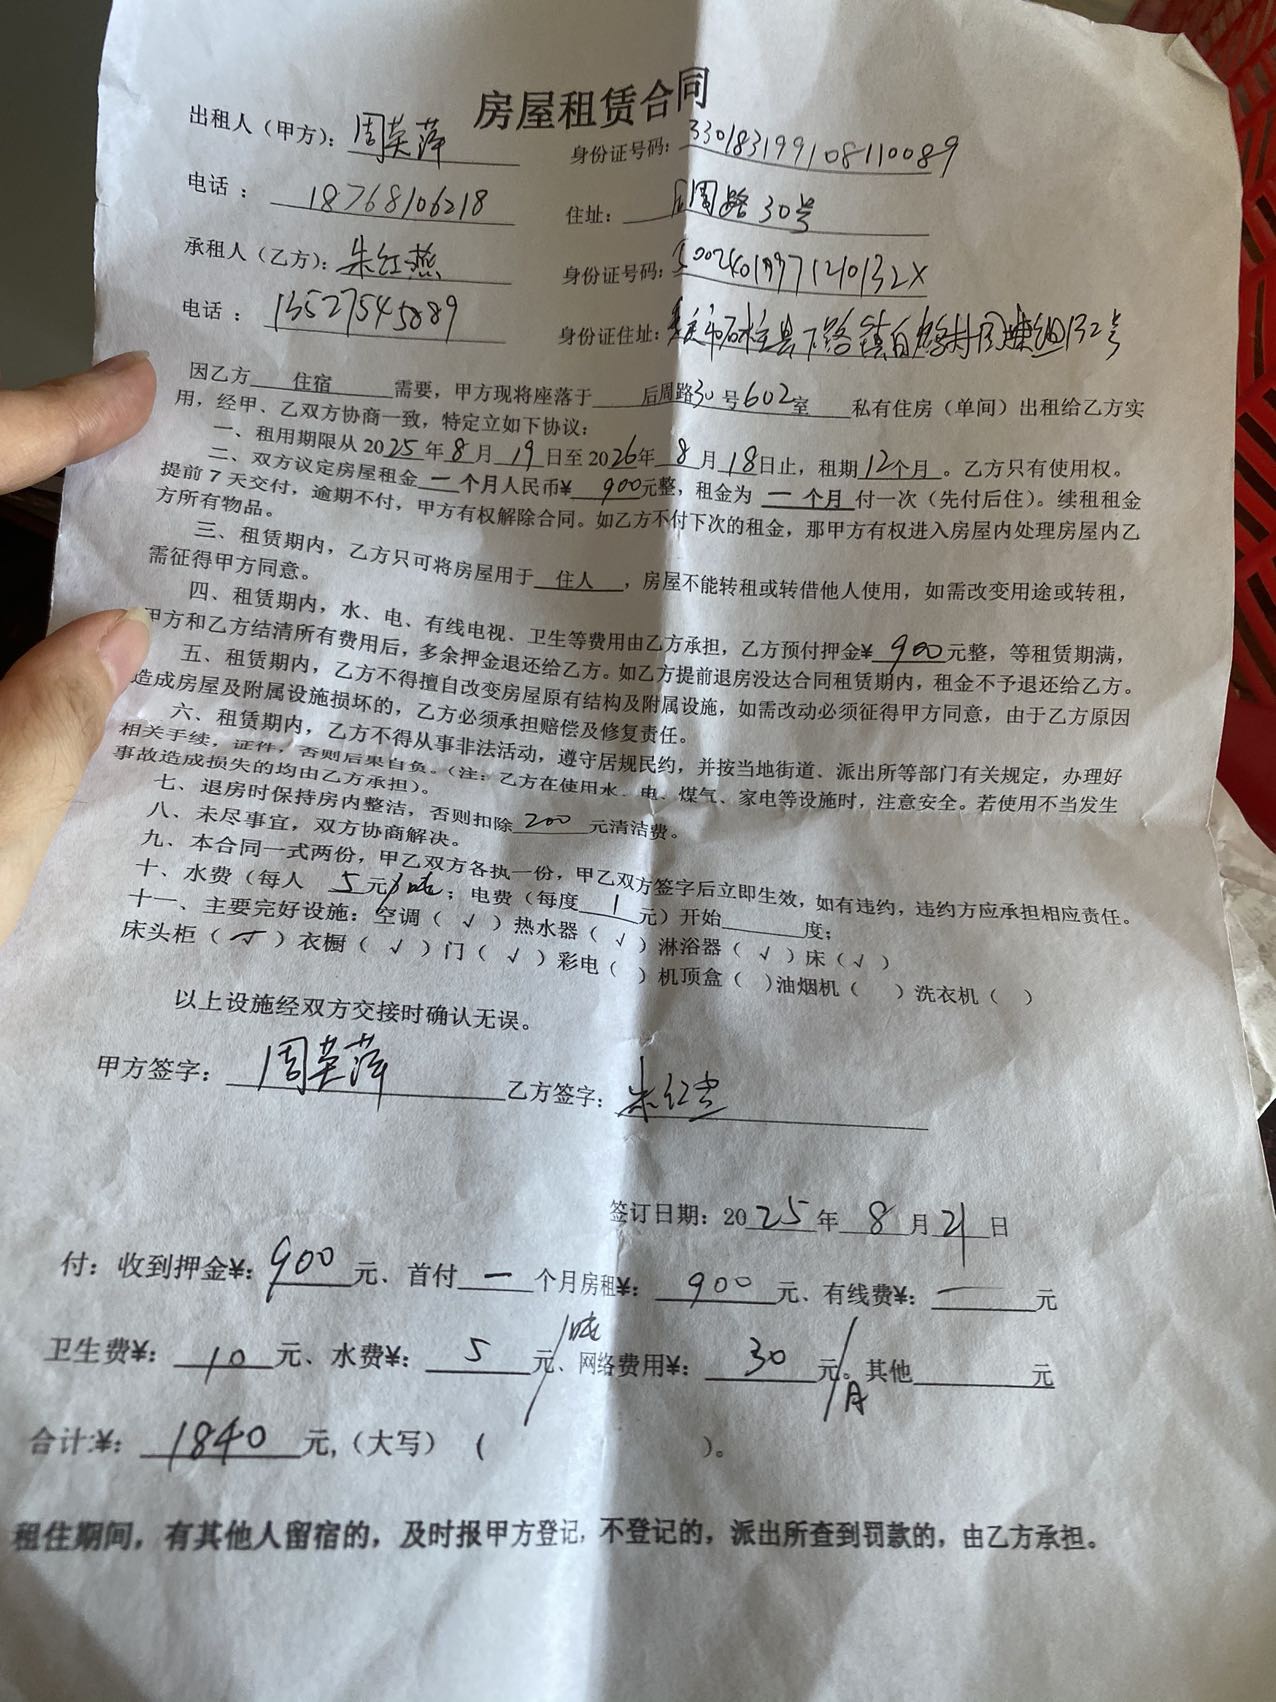 房屋租赁合同
出租人（甲方）：周英萍 身份证号码：330183199108110089
电话：18768106218 住址：后周路30号
承租人（乙方）：朱红燕 身份证号码：50024019971210132X
电话：13527545889 身份证住址：重庆市石柱县下路镇白 村 组132号
因乙方 住宿 需要，甲方现将座落于 后周路30号602室 私有住房（单间）出租给乙方实
用，经甲、乙双方协商一致，特定立如下协议：
一、租用期限从2025年8月19日至2026年8月18日止，租期12个月。乙方只有使用权。
二、双方议定房屋租金 一 个月人民币¥ 900元整，租金为 一个月 付一次（先付后住）。续租租金
提前7天交付，逾期不付，甲方有权解除合同。如乙方不付下次的租金，那甲方有权进入房屋内处理房屋内乙
方所有物品。
三、租赁期内，乙方只可将房屋用于 住人 ，房屋不能转租或转借他人使用，如需改变用途或转租，
需征得甲方同意。
四、租赁期内，水、电、有线电视、卫生等费用由乙方承担，乙方预付押金¥ 900元整，等租赁期满，
甲方和乙方结清所有费用后，多余押金退还给乙方。如乙方提前退房没达合同租赁期内，租金不予退还给乙方。
五、租赁期内，乙方不得擅自改变房屋原有结构及附属设施，如需改动必须征得甲方同意，由于乙方原因
造成房屋及附属设施损坏的，乙方必须承担赔偿及修复责任。
六、租赁期内，乙方不得从事非法活动，遵守居规民约，并按当地街道、派出所等部门有关规定，办理好
相关手续，证件，否则后果自负。（注：乙方在使用水、电、煤气、家电等设施时，注意安全。若使用不当发生
事故造成损失的均由乙方承担）。
七、退房时保持房内整洁，否则扣除 200 元清洁费。
八、未尽事宜，双方协商解决。
九、本合同一式两份，甲乙双方各执一份，甲乙双方签字后立即生效，如有违约，违约方应承担相应责任。
十、水费（每人 5元/吨；电费（每度 1 元）开始 度；
十一、主要完好设施：空调（ √ ）热水器（ √ ）淋浴器（ √ ）床（ √ ）
床头柜（ √ ）衣橱（ √ ）门（ √ ）彩电（ ）机顶盒（ ）油烟机（ ）洗衣机（ ）
以上设施经双方交接时确认无误。
甲方签字：周英萍 乙方签字：朱红燕
签订日期：2025年8月21日
付：收到押金¥：900元、首付 一 个月房租¥：900元、有线费¥：一元
卫生费¥：10元、水费¥：5元/吨、网络费用¥：30元/月。其他 元
合计¥：1840元，（大写）（ ）。
租住期间，有其他人留宿的，及时报甲方登记，不登记的，派出所查到罚款的，由乙方承担。